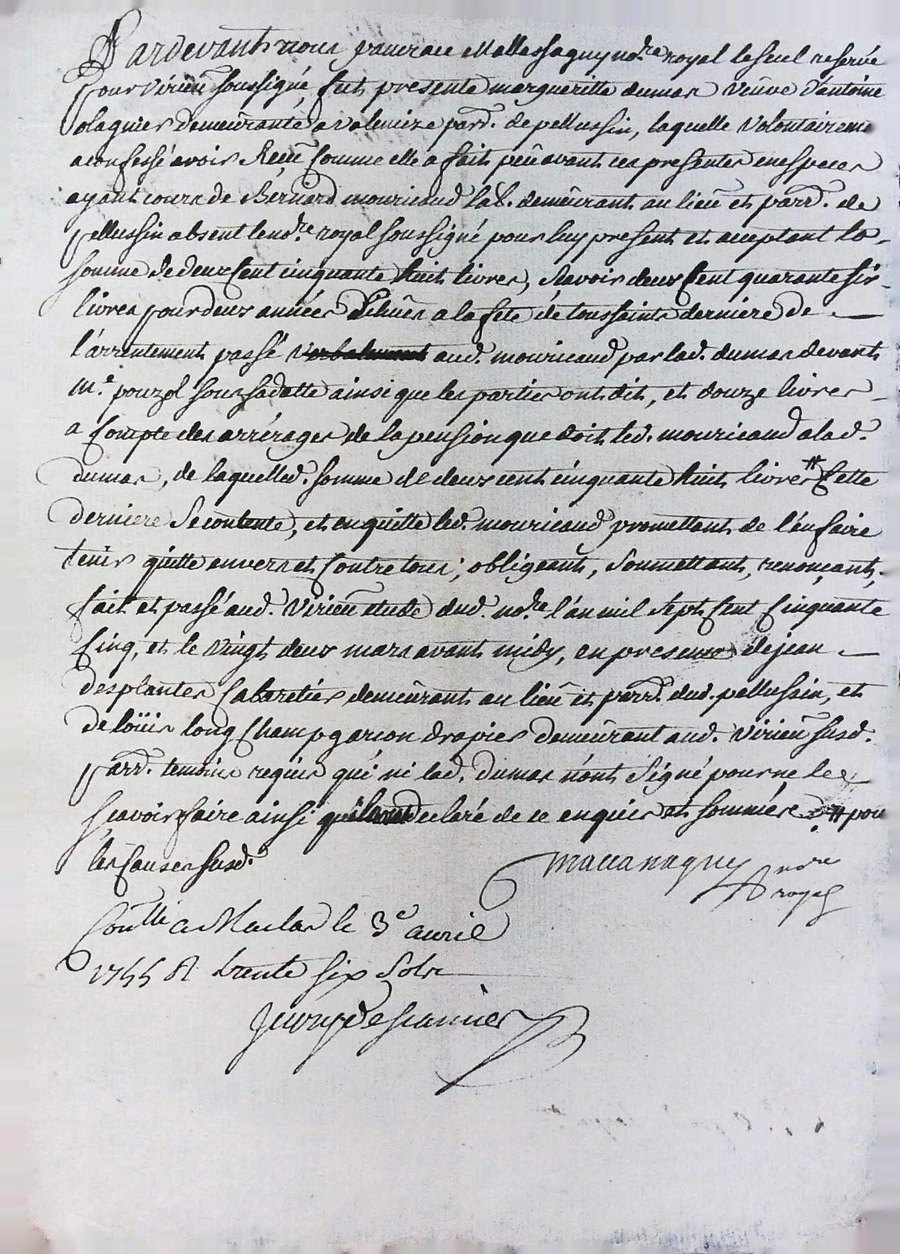 Pardevant nous pancrace Mallassagny no.re royal le seul reservé
pour Virieu soussigné fut presente margueritte dumas veuve d'antoine
olagnier demeurante a valencize parr. de pellussin, laquelle volontairem.
a confessé avoir Receu comme elle a fait peû avant ces presentes en especes
ayant cours de Bernard mouricaud lab. demeurant au lieu et parr. de
pellussin absent le no.re royal soussigné pour luy present et acceptant la
somme de deux cent cinquante huit livres, Scavoir deux Cent quarante six
livres pour deux années Echûes a la fête de toussaints derniere de
l'arrentement passé verbalment aud. mouricaud par lad. dumas devant
m.e pouzol sous sa datte ainsi que les parties ont dit, et douze livres
a Compte des arrérages de la pension que doit led. mouricaud a lad.
dumas, de laquelled. somme de deux cent cinquante huit livres # Cette
derniere Se contente, et en quitte led. mouricaud promettant de l'en faire
tenir quitte envers et Contre tous; obligeant, Soumettant, renonçant,
fait et passé aud. Virieu etude dud. no.re l'an mil Sept Cent Cinquante
Cinq, et le vingt deux mars avant midy, en presence de jean
desplantes Cabaretier demeurant au lieu et parr. dud. pellussin, et
de loüis long Champ garcon drapier demeurant aud. Virieu susd.
parr. temoins requis qui ni lad. dumas n'ont Signé pour ne le
scavoir faire ainsi qu'ils ont declaré de ce enquis et sommés # pour
les Causes susd.
mallassagny no.re
royal
Con.lle a Maclas le 3e avril
1755 R trente six Sols